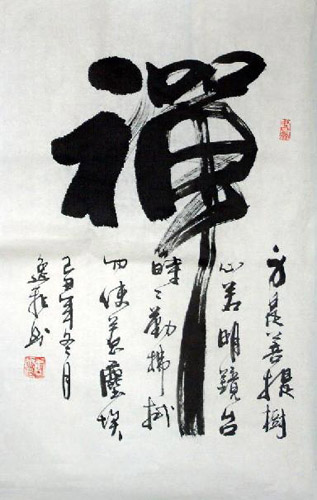 禪
身是菩提樹
心若明鏡台
時〻勤拂拭
勿使惹塵埃
己丑年冬月